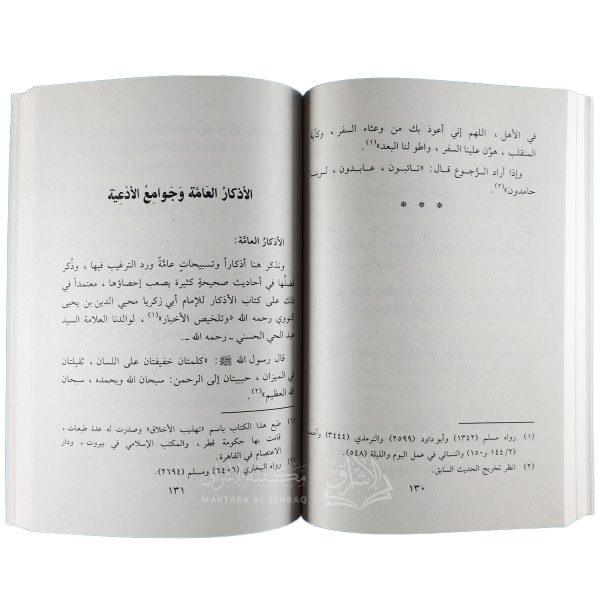 في الأهل ، اللهم إني أعوذ بك من وعثاء السفر ، وكآبة
المنقلب ، هوّن علينا السفر ، واطو لنا البعد»(١).
وإذا أراد الرُّجوع قال: «تائبون ، عابدون ، لربنا
حامدون»(٢).
* * *
(١) رواه مسلم (١٣٤٢) وأبو داود (٢٥٩٩) والترمذي (٣٤٤٤) وأحمد
(٢/١٤٤ و١٥٠) والنسائي في عمل اليوم والليلة (٥٤٨).
(٢) انظر تخريج الحديث السابق.
١٣٠
الأذكارُ العَامَّة وَجَوامِعُ الأدْعِيَة
الأذكارُ العامَّة:
ونذكر هنا أذكاراً وتسبيحاتٍ عامَّةً ورد الترغيب فيها ، وذُكر
فضلُها في أحاديث صحيحةٍ كثيرة يصعب إحصاؤها ، معتمداً في
ذلك على كتاب الأذكار للإمام أبي زكريا محيي الدين بن يحيى
النووي رحمه الله «وتلخيص الأخبار»(١) ، لوالدنا العلامة السيد
عبد الحي الحسني ـ رحمه الله ـ.
قال رسول الله ﷺ: «كلمتان خفيفتان على اللسان ، ثقيلتان
في الميزان ، حبيبتان إلى الرحمن: سبحان الله وبحمده ، سبحان
الله العظيم»(٢).
(١) طبع هذا الكتاب باسم «تهذيب الأخلاق» وصدرت له عدة طبعات ،
قامت بها حكومة قطر ، والمكتب الإسلامي في بيروت ، ودار
الاعتصام في القاهرة.
(٢) رواه البخاري (٦٤٠٦) ومسلم (٢٦٩٤).
١٣١
مكتبة الإشراق
MAKTABA AL-ICHRAQ
الإشراق